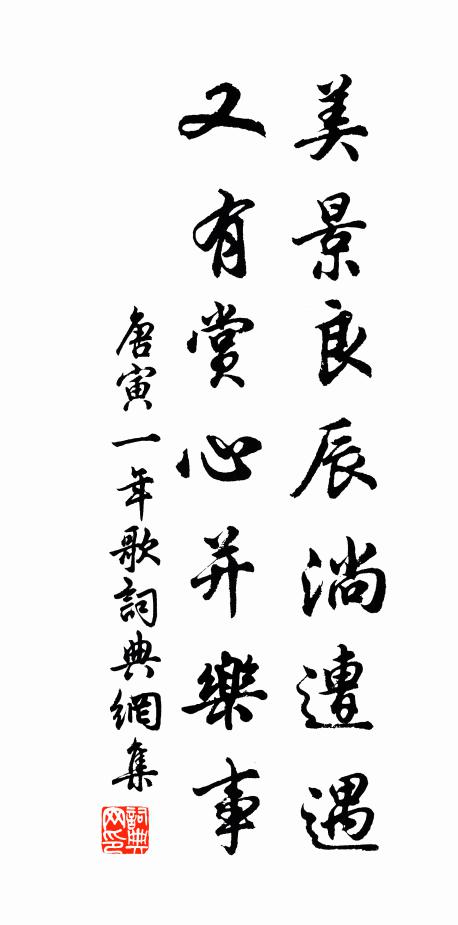 美景良辰淌遭遇
又有赏心并樂事
唐寅一年歌詞典網集
詞典網印